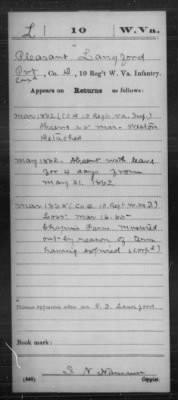 L | 10 | W. Va.
Pleasant Langford
Pvt
Corpl, Co. D, 10 Reg't W. Va. Infantry.
Appears on Returns as follows:
Mar 1862 (Co D 10 Regt. Va. Inf.)
Absent Mar. Weston
Detached
May 1862. Absent with leave
for 4 days from
May 31. 1862
Mar 186 (Co D 10 Regt W. Va I)
Loss: Mar 16. 65-
Chapins Farm Mustered
out by reason of term
having expired (Corpl)
Name appears also as P. J. Langford
Book mark:
(546)
S. N.
Copyist.